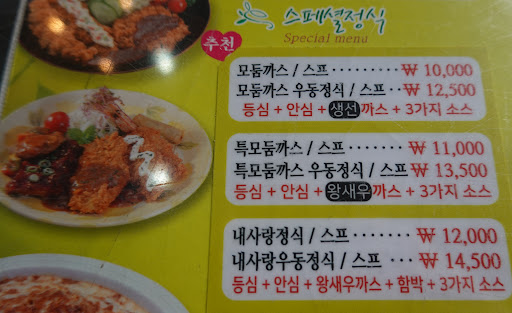 스페셜정식
Special menu
추천
모둠까스 / 스프 ········· ₩ 10,000
모둠까스 우동정식 / 스프 ·· ₩ 12,500
등심 + 안심 + 생선까스 + 3가지 소스
특모둠까스 / 스프 ······ ₩ 11,000
특모둠까스 우동정식 / 스프 · ₩ 13,500
등심 + 안심 + 왕새우까스 + 3가지 소스
내사랑정식 / 스프 ······ ₩ 12,000
내사랑우동정식 / 스프 ··· ₩ 14,500
등심 + 안심 + 왕새우까스 + 함박 + 3가지 소스